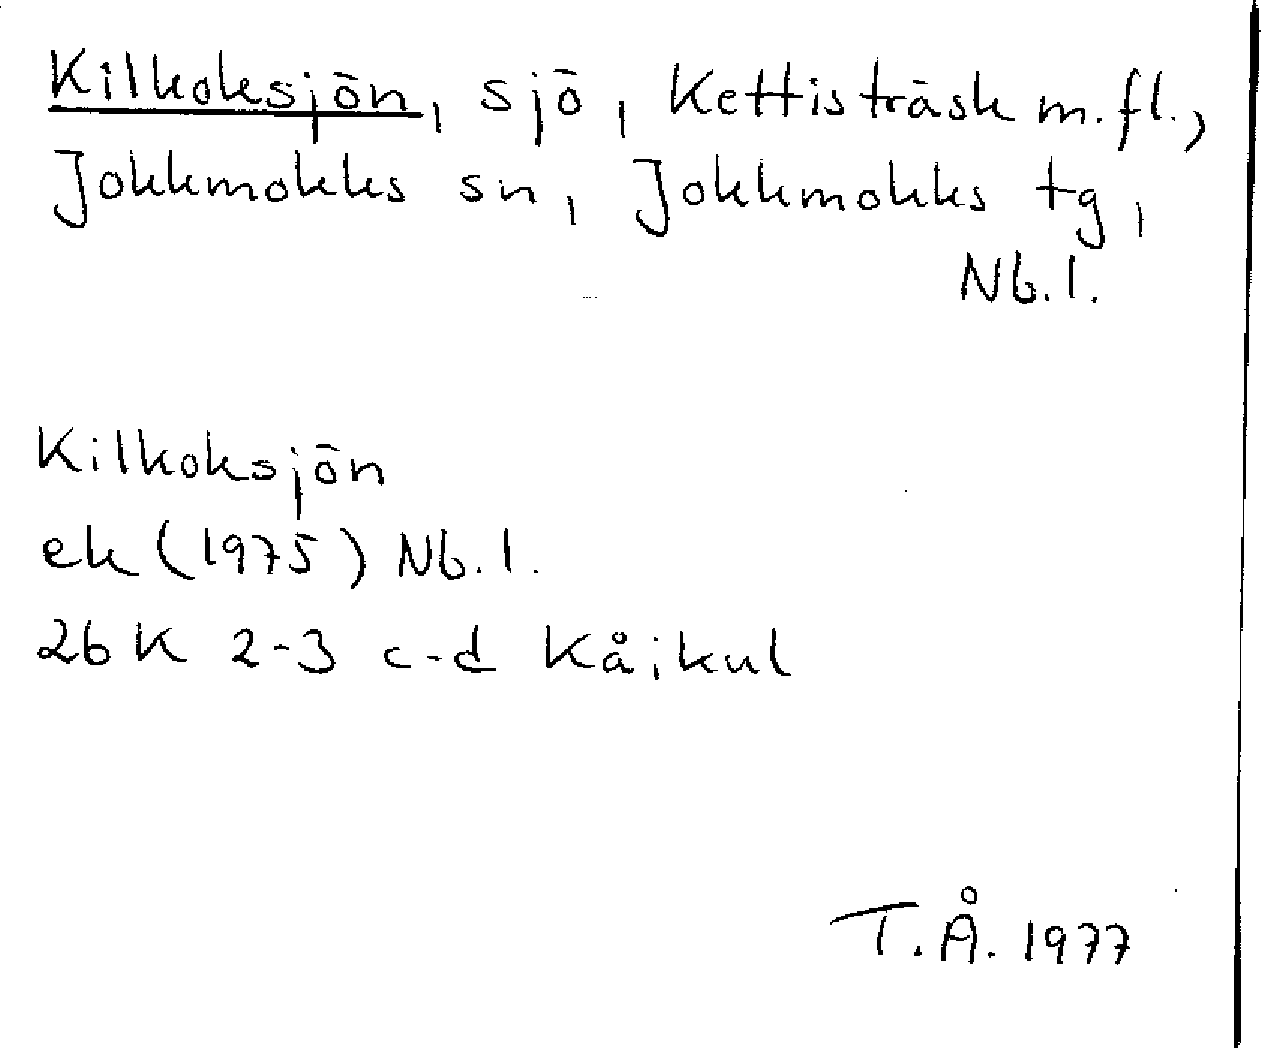 Kilkoksjön, sjö, Kettisträsk m.fl.,
Jokkmokks sn, Jokkmokks tg,
Nb.l.
Kilkoksjön
ek (1975) Nb.l.
26 K 2-3 c-d Kåikul
T.Å. 1977